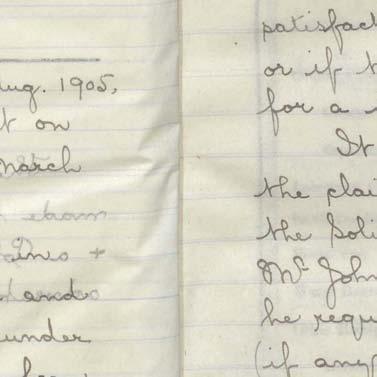 Aug. 1905,
t on
march
ains +
and
under
satisfact
or if t
for a
It
the clai
the Soli
Mr John
he requ
(if any